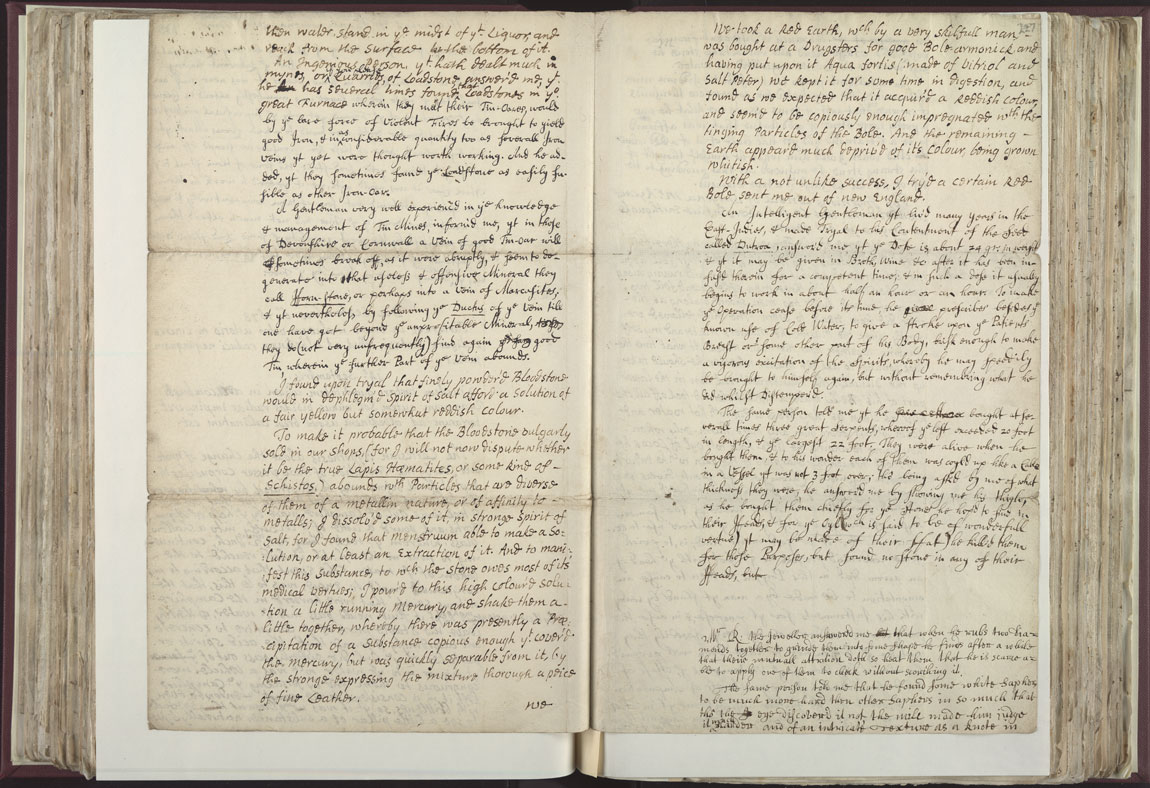 then water stand in ye midst of yt. Liquor, and
reach from the surface to the bottom of it.
An Ingenious Person, yt. hath dealt much in
mynes, or Quarries, of Loadstone answer'd me, yt.
he has severel times found, that Loadstones in ye
great Furnace wherein they melt their Tin-Oares, would
by ye bare force of Violent Fires be brought to yield
good Iron, & in as considerable quantity too as severall Iron
Veins yt yet were thought worth working. And he ad-
ded, yt they sometimes found ye Loadstone as easily fu-
sible as other Iron-Oar.
A Gentleman very well experienc'd in ye knowledge
& management of Tin Mines, inform'd me, yt in those
of Devonshire or Cornwall a Vein of good Tin-Oar will
sometimes break off, as it were abruptly, & seem to de-
generate into that useless & offensive Mineral they
call Horn-stone, or perhaps into a Vein of Marcasites;
& yt nevertheless by following ye Ductus of ye Vein till
one have got beyond ye unprofitable Mineral,
they do (not very unfrequently) find again good
Tin, wherein ye further Part of ye Vein abounds.
I found upon tryal that finely powder'd Bloodstone
would in dephlegm'd Spirit of Salt afford a Solution of
a fair yellow but somewhat reddish colour.
To make it probable that the Bloodstone vulgarly
sold in our shops, (for I will not now dispute whether
it be the true Lapis Hæmatites, or some kind of -
Schistos,) abounds wth Particles that are diverse
of them of a metallin nature, or of affinity to -
metalls; I dissolv'd some of it, in strong Spirit of
Salt, for I found that menstruum able to make a So-
lution, or at least an Extraction of it. And to mani-
fest this Substance, to wch the stone owes most of its
medical vertues; I pour'd to this high colour'd Solu-
tion a little running Mercury, and shake them a-
little together, whereby there was presently a Præ-
cipitation of a Substance copious enough yt. cover'd
the mercury, but was quickly separable from it, by
the strong expressing the mixture thorough a peice
of fine Leather.
we
We took a Red Earth, wch by a very skilfull man
was bought at a Drugsters for good Bole armonick, and
having put upon it Aqua fortis (made of Vitriol and
Salt Peter) we kept it for some time in digestion, and
found as we expected that it acquir'd a Reddish Colour,
and seem'd to be copiously enough impregnated with the
tinging Particles of the Bole. And the remaining -
Earth appear'd much depriv'd of its Colour, being grown
whitish.
With a not unlike success, I try'd a certain Red
Bole sent me out of new England.
An Intelligent Gentleman yt liv'd many years in the
East-Indies, & made tryal to his Contentment of the Seed
called Dutroa, answer'd me yt ye Dose is about 24 grs. in weight
& yt it may be given in Broth, Wine &c after it has been in-
fus'd therein for a competent time; & in such a dose it usually
begins to work in about half an hour or an hour. To make
ye operation cease before its time, he prescribes besides ye
known use of Cold Water, to give a stroke upon ye Patients
Breast or some other part of his Body, brisk enough to make
a vigorous excitation of the spirits, whereby he may speedily
be brought to himself again, but without remembring what he
did whilst Distemper'd.
The same person told me yt he bought at se-
verall times three great Serpents, whereof ye least exceeded 20 foot
in length, & ye largest 22 foot. They were alive when he
bought them, & to his wonder each of them was coyl'd up like a Cable
in a Vessel yt was not 3 foot over, Tho being askd by me of what
thickness they were, he answer'd me by showing me his thighs,
as he bought them chiefly for ye Stone he hop'd to find in
their Heads, & for ye Oyl (wch is said to be of wonderfull
vertue) yt may be made of their Fat) he kill'd them
for those Purposes, but found no Stone in any of their
Heads, but
Mr. R. the Jeweller answered me that when he rubs two Dia-
monds together to grinde them into some shape he finds after a while
that their mutuall attrition doth so heat them that he is scarce a-
ble to apply one of them to his cheek without scorching it.
The same person told me that he found some white Saphirs
to be much more hard then other Saphirs in so much that
tho the eye discovered it not the mill made him judge
it and of an intricate Texture as a knote in